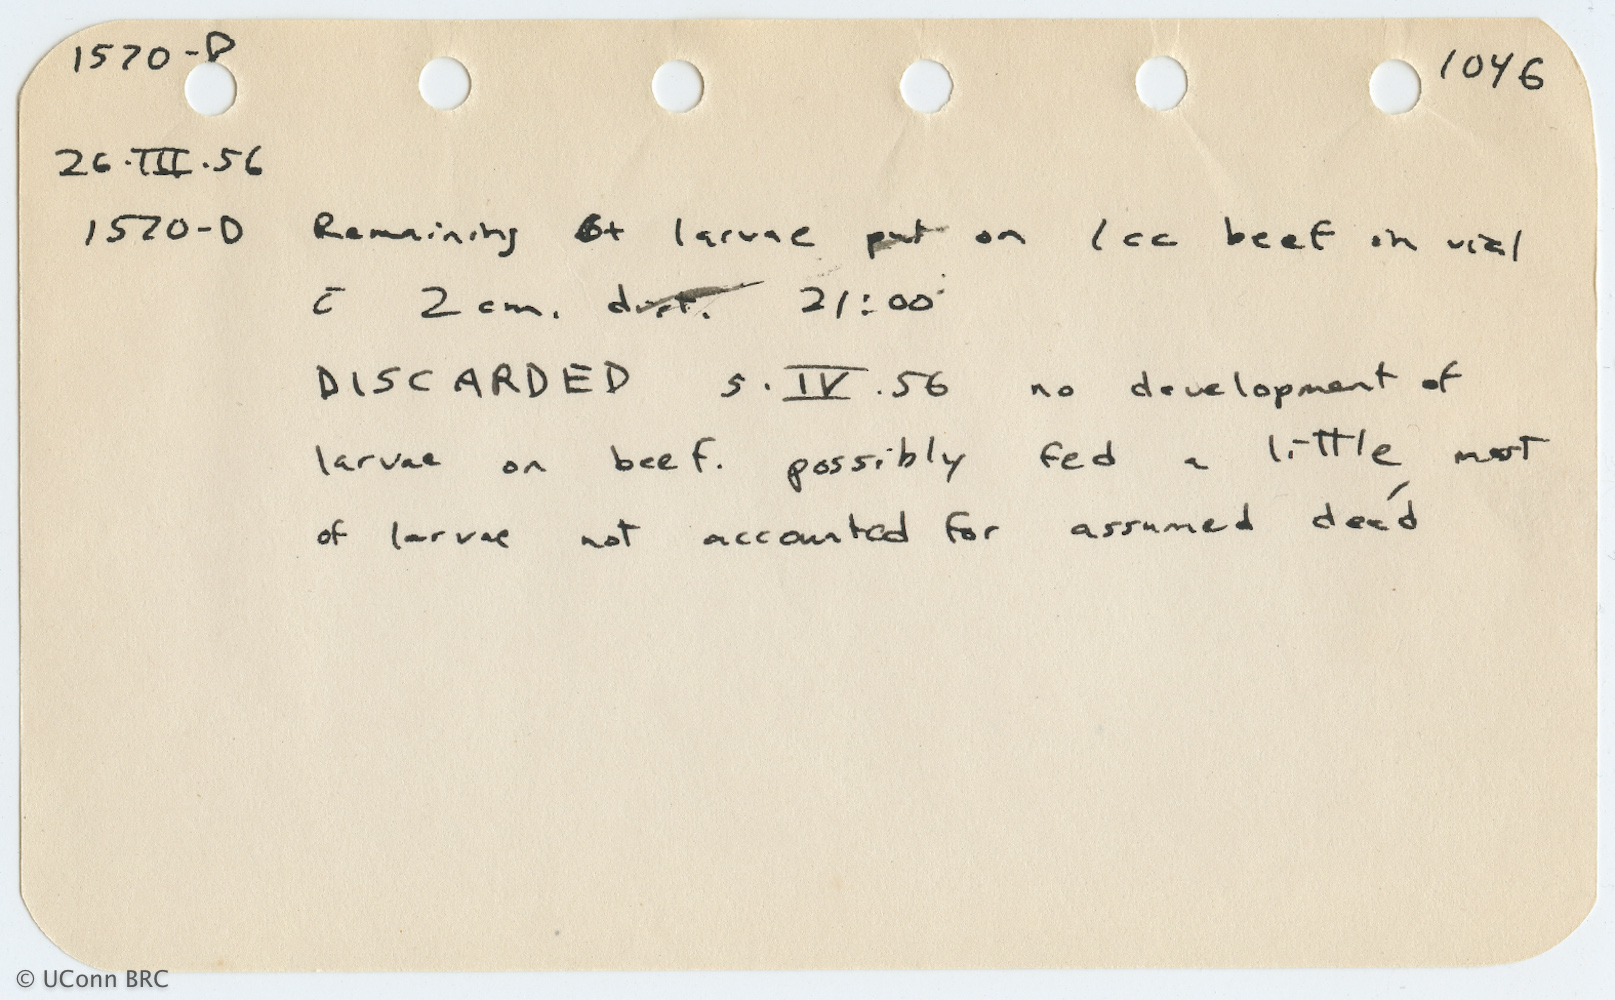 1570-D
1046
26·III·56
1570-D Remaining 6+ larvae put on 1cc beef in vial
c̄ 2 cm. dirt. 21:00
DISCARDED 5·IV·56 no development of
larvae on beef. possibly fed a little most
of larvae not accounted for assumed dead
© UConn BRC